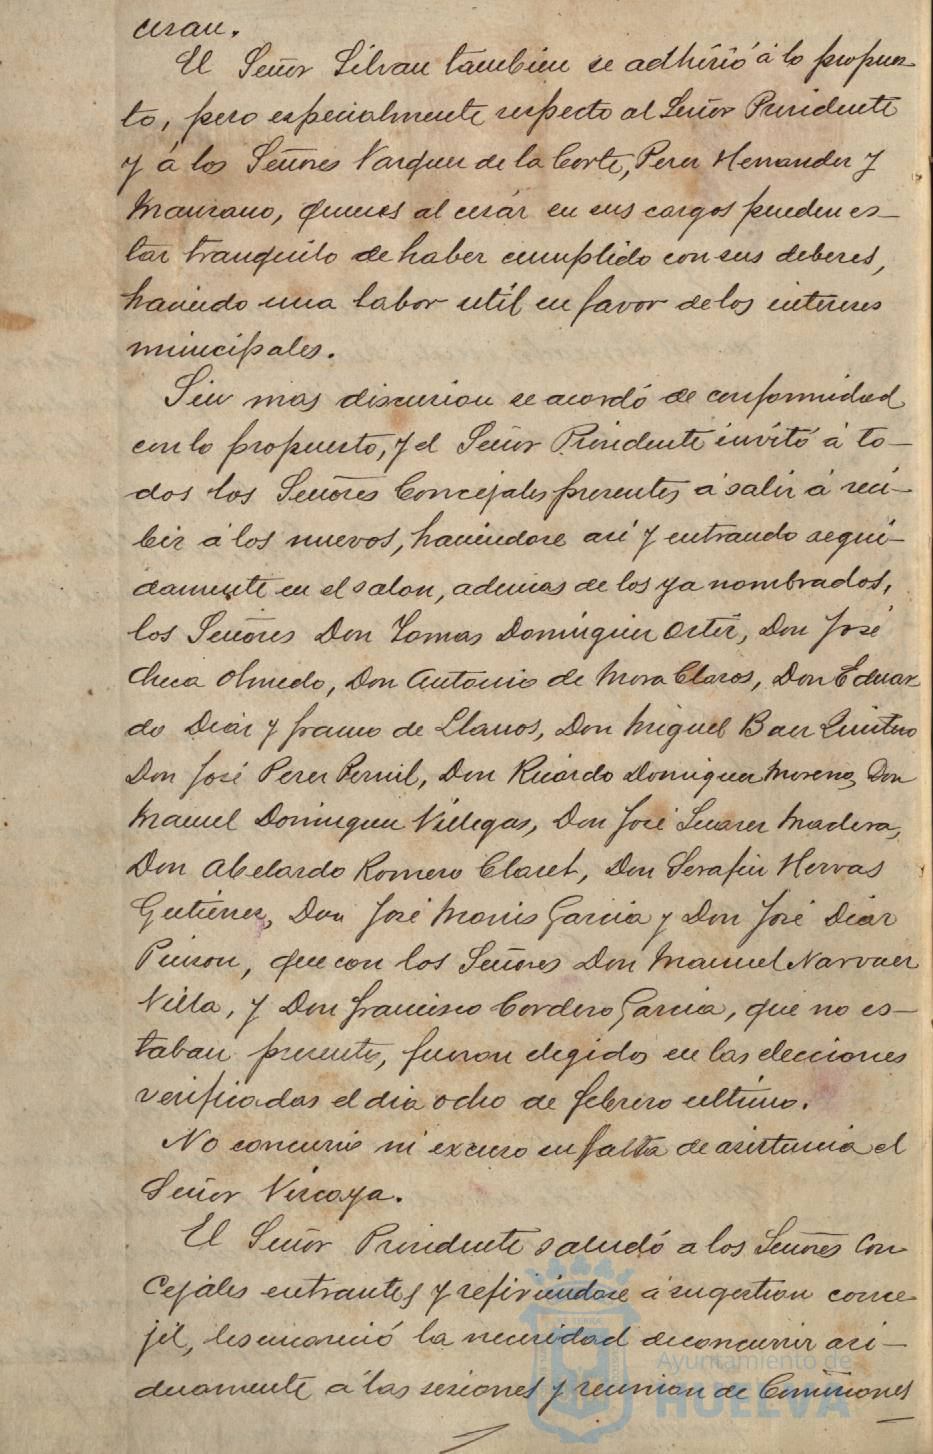 cesan.
El Señor Silvan tambien se adhirió á lo propues-
to, pero especialmente respecto al Señor Presidente
y á los Señores Vazquez de la Corte, Perez Hernandez y
Manzano, quienes al cesár en sus cargos pueden es-
tar tranquilo de haber cumplido con sus deberes,
haciendo una labor util en favor de los intereses
minicipales.
Sin mas discusion se acordó de conformidad
con lo propuesto, y el Señor Presidente invitó á to-
dos los Señores Concejales presentes á salir á reci-
bir á los nuevos, haciendose asi y entrando segui-
damente en el salon, ademas de los ya nombrados,
los Señores Don Tomas Dominguez Ortiz, Don José
Checa Olmedo, Don Antonio de Mora Claros, Don Eduar
do Diaz y Franco de Llanos, Don Miguel Baez Quintero
Don José Perez Pernil, Don Ricardo Dominguez Moreno, Don
Manuel Dominguez Villegas, Don José Suarez Madera,
Don Abelardo Romero Claret, Don Serafin Hervas
Gutierrez, Don José Monis Garcia y Don José Diaz
Pinzon, que con los Señores Don Manuel Narvaez
Villa, y Don Francisco Cordero Garcia, que no es-
taban presentes, fueron elegidos en las elecciones
verificadas el dia ocho de febrero ultimo.
No concurrio ni excuso su falta de asistencia el
Señor Vizcaya.
El Señor Presidente saludó a los Señores Con
cejales entrantes y refiriendose á su gestion conce
jil, les enunció la necesidad de concurrir asi-
duamente á las sesiones y reunion de Comisiones
Ayuntamiento de
HUELVA